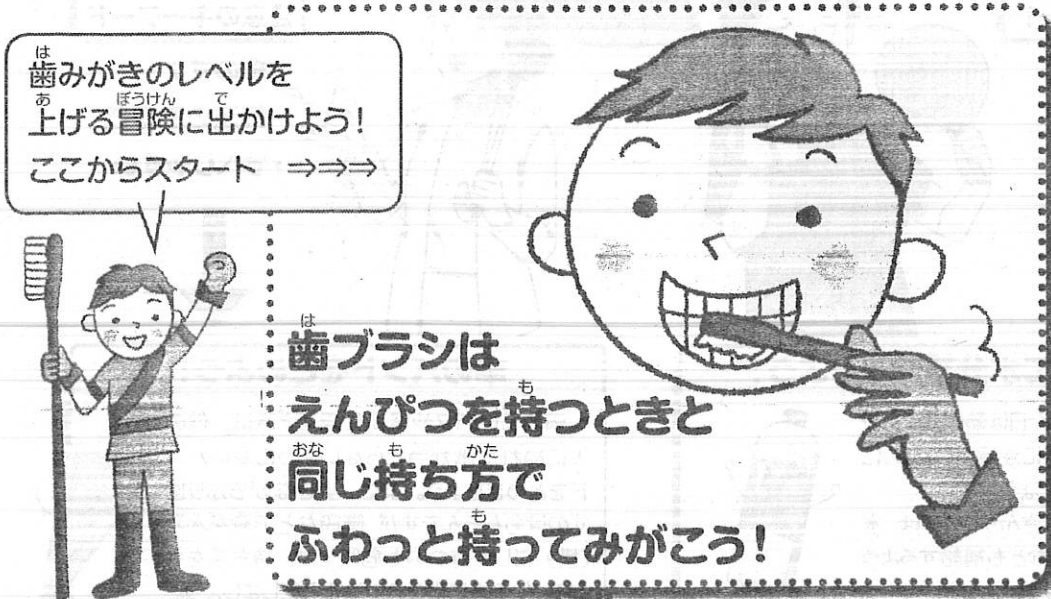 歯みがきのレベルを
上げる冒険に出かけよう!
ここからスタート ⇒⇒⇒
歯ブラシは
えんぴつを持つときと
同じ持ち方で
ふわっと持ってみがこう!